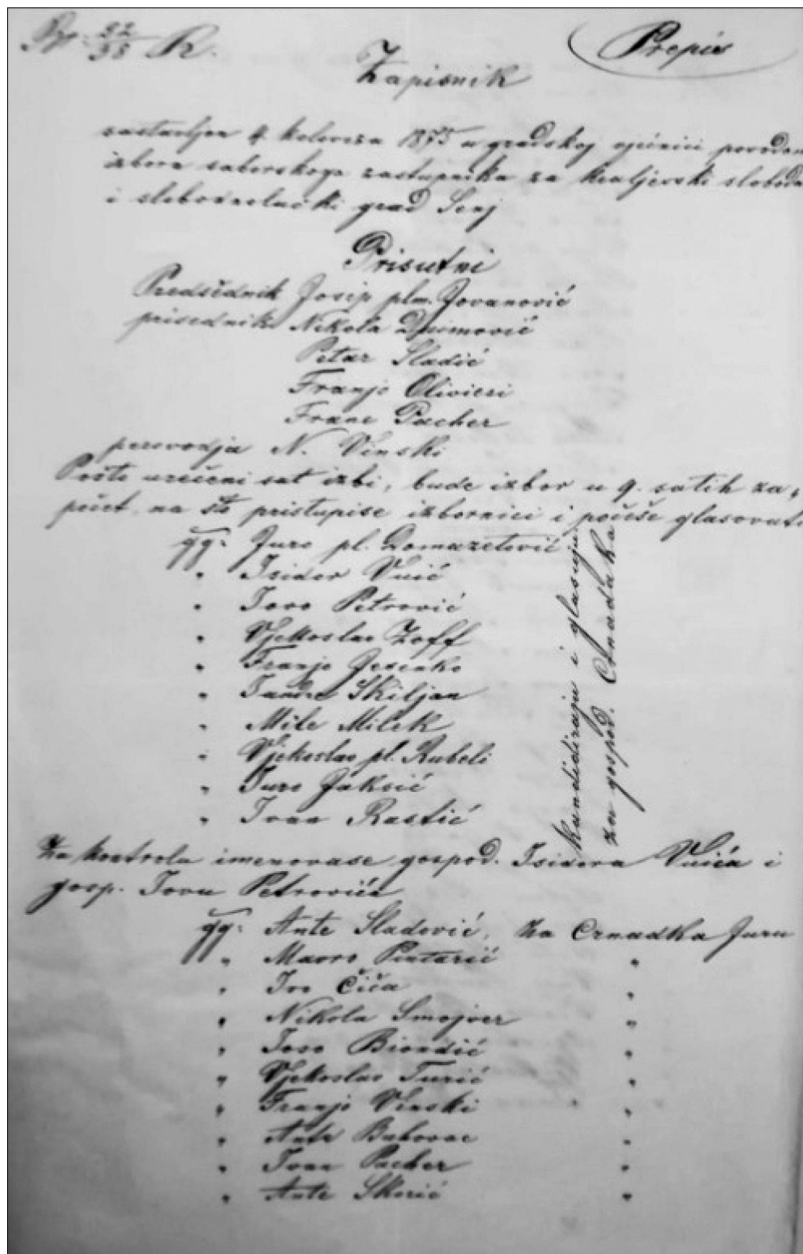 32
33 R.
Prepis
Zapisnik
sastavljen 4 kolovoza 1875 u gradskoj općnici povodom
izbora saborskoga zastupnika za kraljevski slobodni
i slobodnolučki grad Senj
Prisutni
Predsědnik Josip plm. Jovanović
prisednik Nikola
Petar Sladić
Franjo Olivieri
Frane Pacher
perovodja N. Vinski
Pošto urečeni sat izbi, bude izbor u 9. satih za,
počet, na što pristupiše izbornici i počeše glasovati
gg. Juro pl. Domazetović
" Isidor Vuić
" Jovo Petrović
" Vjekoslav Zoff
" Franjo Jesenko
" Skiljan
" Mile Milek
" Vjekoslav pl. Rubeli
" Juro Jaksić
" Ivan Rastić
kandidiraju i glasuju
za gospod. Crnadaka
Za kontrola imenovaše gospod. Isidora Vuića i
gosp. Jovu Petrovića
gg. Ante Sladović, za Crnadka Juru
" Mavro Pintarić "
" Ivo Čiča "
" Nikola Smojver "
" Joso Biondić "
" Vjekoslav Turić "
" Franjo Vinski "
" Ante Bukovac "
" Ivan Pacher "
" Ante Skorić "